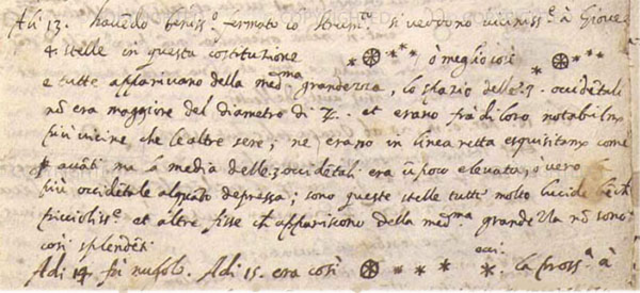 Adi 13. havēdo beniss.o fermato lo strum.to si veddono viciniss.e à Giove
4. stelle in questa costituzione ò meglio così
e tutte apparivano della med.ma grandezza, lo spazio delle 3. occidētali
nō era maggiore del diametro di ♃. et erano frà di loro notabilm
più vicine che le altre sere; ne erano in linea retta esquisitamx come
p avāti ma la media delle 3 occidētali era ū poco elevata, ò vero la
più occidētale alquāto depressa; sono queste stelle tutte molto lucide bēch
picciolliss.e et altre fisse ch appariscono della med.ma grandezza nō sono
così splendēti
Adi 14 fù nugolo. Adi 15. era così occi. la pross.a à